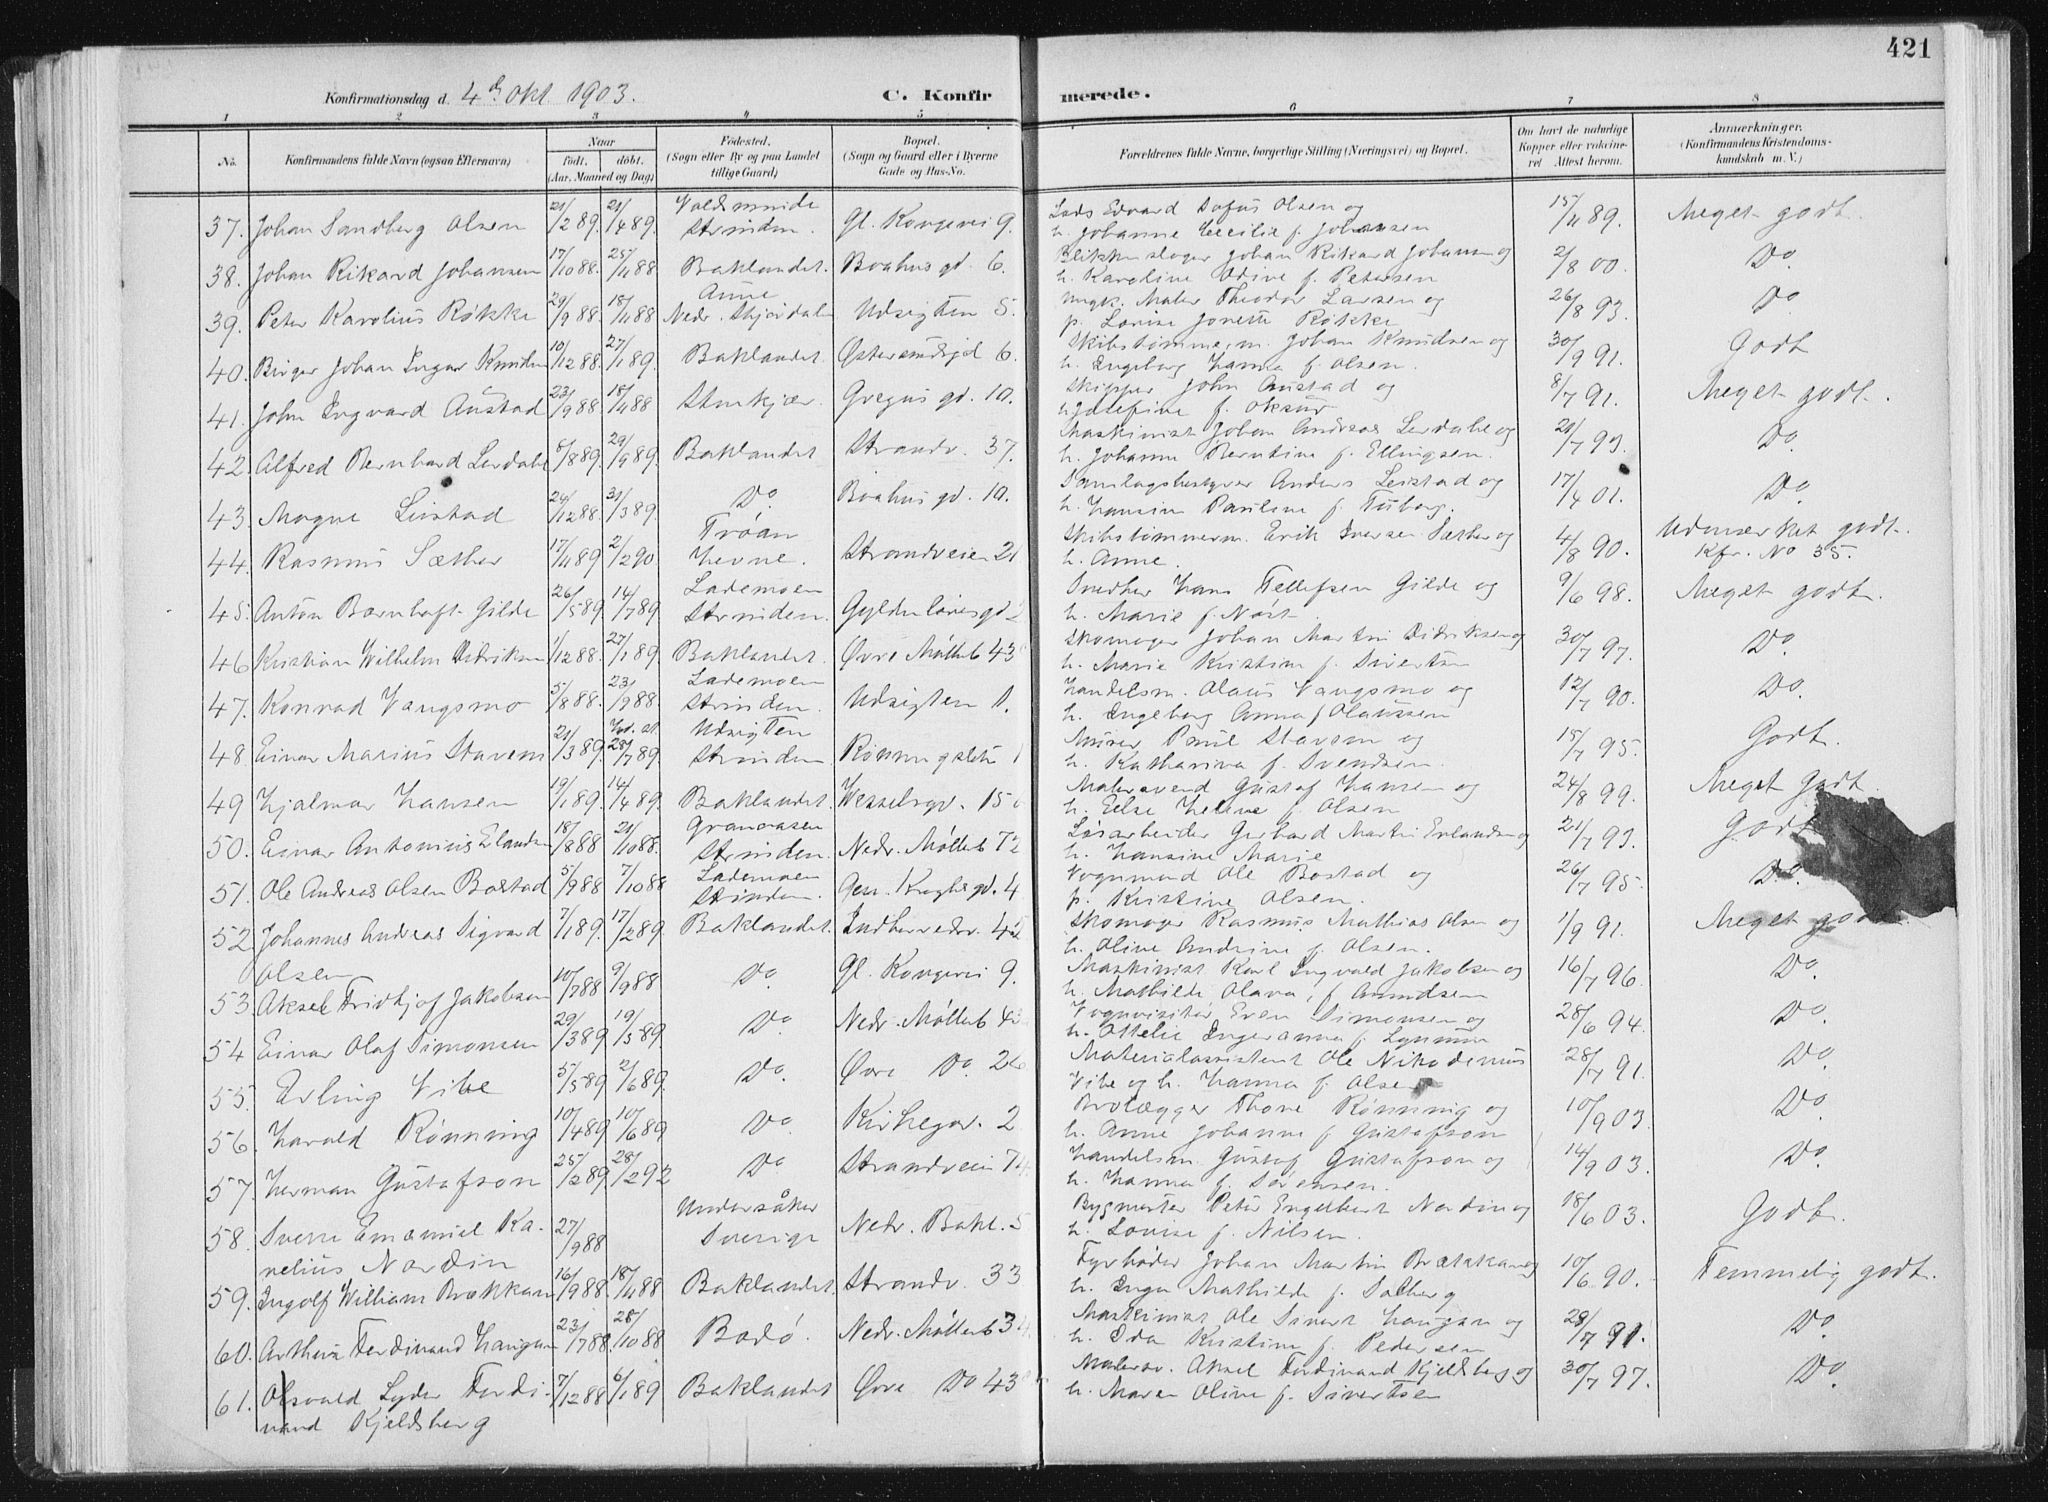 421
Konfirmationsdag d. 4de Okt. 1903. C. Konfirmerede.
1 2 3 4 5 6 7 8
No. Konfirmandens fulde Navn (ogsaa Efternavn) Naar født. døbt. (Aar, Maaned og Dag) Fødested. (Sogn eller By og paa Landet tillige Gaard) Bopæl. (Sogn og Gaard eller i Byerne Gade og Hus-No. Forældrenes fulde Navne, borgerlige Stilling (Næringsvei) og Bopæl. Om havt de naturlige Kopper eller vakcineret. Attest herom. Anmærkninger. (Konfirmandens Kristendomskundskab m. V.)
37. Johan Sandberg Olsen 21/2 89. 21/4 89. Strinden. Gl. Kongevei 9. Edvard Sofus Olsen og h. Johanne Cecilie f. Johansen 15/11 89. Meget godt.
38. Johan Rikard Johansen 17/10 88. 25/11 88 Baklandet. Boahus gd. 6. Blikkenslager Johan Rikard Johansen og h. Karoline Odive f. Petersen 2/8 00. Do.
39. Peter Karolius Røkke 29/9 88. 18/11 88 Aune Nedr. Stjørdalen Udsigten 5. Ungk. Maler Theodor Larsen og p. Lovise Jonette Røkke 26/8 93. Do
40. Birger Johan Ingvar Knudsen 10/12 88. 27/1 89. Baklandet. Østersundsgd 6. Skibstømmerm. Johan Knudsen og h. Ingeborg Hanna f. Olsen. 30/9 91. Godt
41. John Ingvard Austad 23/9 88. 18/11 88 Stenkjær. Gregus gd. 10. Skipper John Austad og h. Josefine f. 8/7 91. Meget godt.
42. Alfred Bernhard Lerdahl 8/8 89. 29/9 89. Baklandet Strandv. 37. Maskinist Johan Andreas Lerdahl og h. Johanne Berntine f. Ellingsen. 21/7 93. Do.
43. Magne Leistad 24/12 88. 31/3 89. Do. Boahus gd. 10. Samlagsbestyrer Anders Leistad og h. Hansine Pauline f. Tuborg. 17/4 01. Do.
44. Rasmus Sæther 17/11 89 2/2 90. Trøan Hevne. Strandveien 21 Skibstømmerm. Erik Iversen Sæther og h. Anne. 4/8 90. Udmærket godt. Kfr. No 35.
45. Anton Bornhoft Gilde 26/5 89. 14/7 89 Lademoen Strinden. Gyldenløvesgd 2 Smedker Hans Tellefsen Gilde og h. Marie f. Nøst. 9/6 98. Meget godt.
46 Kristian Wilhelm Didriksen 1/12 88. 27/1 89. Baklandet. Øvre Møllenb 43 Skomager Johan Martin Didriksen og h. Marie Kristine f. Sivertsen 30/7 97. Do.
47. Konrad Vangsmo 5/8 88. 23/9 88. Lademoen Strinden. Udsigten 1. Handelsm. Olaus Vangsmo og h. Ingeborg Anna f. Olaussen 12/7 90. Do.
48. Einar Marius Stavem 21/3 89. 28/7 89. Udsigten Strinden Rønningsletten 1 Murer Paul Stavem og h. Katharina f. Svendsen. 15/7 95. Godt.
49 Hjalmar Hansen 19/1 89. 14/4 89. Baklandet. Wesselsgd. 15 Malersvend Gustaf Hansen og h. Else Helene f. Olsen 24/8 99. Meget Godt.
50. Einar Antonius Erlandsen 18/8 88 21/10 88. Granaasen Strinden. Nedr. Møllenb 72 Løsarbeider Gerhard Martin Erlandsen og h. Hansine Marie 21/7 93. Godt
51. Ole Andreas Olsen Bostad 5/9 88 7/10 88 Lademoen Strinden. Gen. Kroghs gd. 4 Vognmand Ole Bostad og p. Kristine Olsen. 26/7 95. Do.
52 Johannes Andreas Sigvard Olsen 7/1 89. 17/2 89. Baklandet. Indherredsv. 45 Skomager Rasmus Mathias Olsen og h. Oline Andrine f. Olsen. 1/9 91. Meget godt.
53. Aksel Fridtjof Jakobsen 10/7 88 9/9 88 Do. Gl. Kongevei 9. Maskinist Karl Ingvald Jakobsen og h. Mathilde Olava, f. Amundsen 16/7 96. Do.
54 Einar Olaf Simonsen 29/3 89 19/5 89 Do. Nedr. Møllenb 43 Vognvisitør Even Simonsen og h. Ottelie Ingeranna f. Lynum 28/6 94. Do.
55. Erling Vibe 5/5 89. 2/6 89. Do. Øvre Do. 26 Materialassistent Ole Nikodemus Vibe og h. Hanna f. Olsen 28/7 91. Do.
56. Harald Rønning 10/4 89. 10/6 89 Do. Kirkegd. 2 Brolægger Thore Rønning og h. Anne Johanne f. Gustafson 10/9 03. Do.
57. Herman Gustafson 25/2 89. 28/2 92 Do. Strandveien 74. Handelsm. Gustaf Gustafson og h. Hanna f. Sørensen. 14/9 03. Do.
58. Sverre Emanuel Kanelius Nordin 27/9 88 Undersåker Sverige Nedr. Bakl. 5 Bygmester Peter Engelbert Nordin og h. Lovise f. Nilsen. 18/6 03. Godt.
59. Ingolf William Brækkan 16/9 88. 18/11 88 Baklandet. Strandv. 33 Fyrbøder Johan Martin Brækkan og h. Inga Mathilde f. Solberg 10/6 90. Temmelig godt.
60. Arthur Ferdinand Haugan 23/7 88. 28/10 88 Bodø. Nedr. Møllenb 34. Maskinist Ole Sivert Haugan og h. Ida Kristine f. Pedersen 28/7 91. Do.
61. Osvald Lyder Ferdinand Kjeldsberg 7/12 88 6/1 89 Baklandet Øvre Do 43 Malersv. Aksel Ferdinand Kjeldsberg og h. Maren Oline f. Sivertsen 30/7 97. Do.